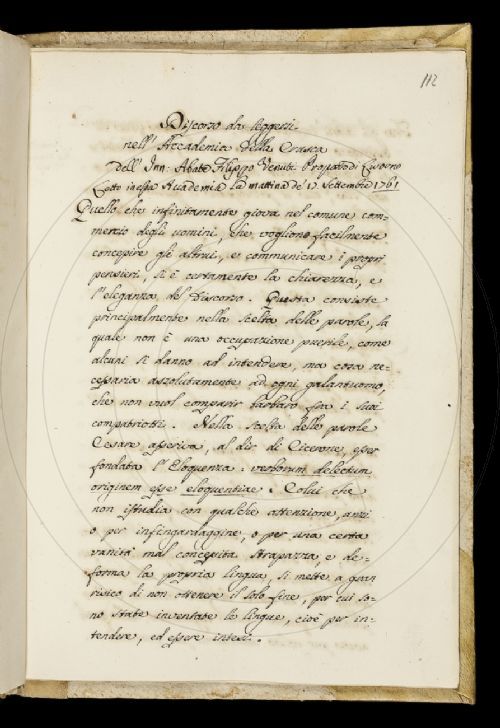 112
Discorso da leggersi
nell' Accademia della Crusca
Dell' Inn: Abate Filippo Venuti Proposto di Livorno
Letto in essa Accademia la mattina de' 17. Settembre 1761
Quello che infinitamente giova nel comune com-
mercio degli uomini, che vogliono facilmente
concepire gli altrui, e communicare i propri
pensieri, si è certamente la chiarezza, e
l'eleganza del Discorso. Questa consiste
principalmente nella scelta delle parole, la
quale non è una occupazione puerile, come
alcuni si danno ad intendere, ma cosa ne-
cessaria assolutamente ad ogni galantuomo,
che non vuol comparir barbaro fra i suoi
compatriotti. Nella scelta delle parole
Cesare asseriva, al dir di Cicerone, esser
fondata l'Eloquenza: verborum delectum
originem esse eloquentiae. Colui che
non istudia con qualche attenzione, anzi
o per infingardaggine, o per una certa
vanità mal concepita strapazza, e de-
forma la propria lingua, si mette a gran
risico di non ottenere il solo fine, per cui so-
no state inventate le lingue, cioè per in-
tendere, ed essere intesi.